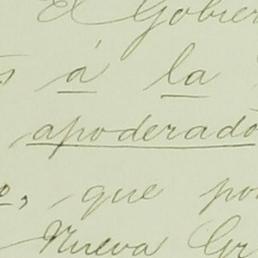 El Gobier
á la
apoderado
que po
Nueva Gr